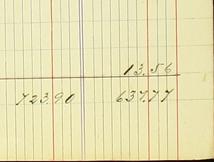 13.56
723.90 637.77